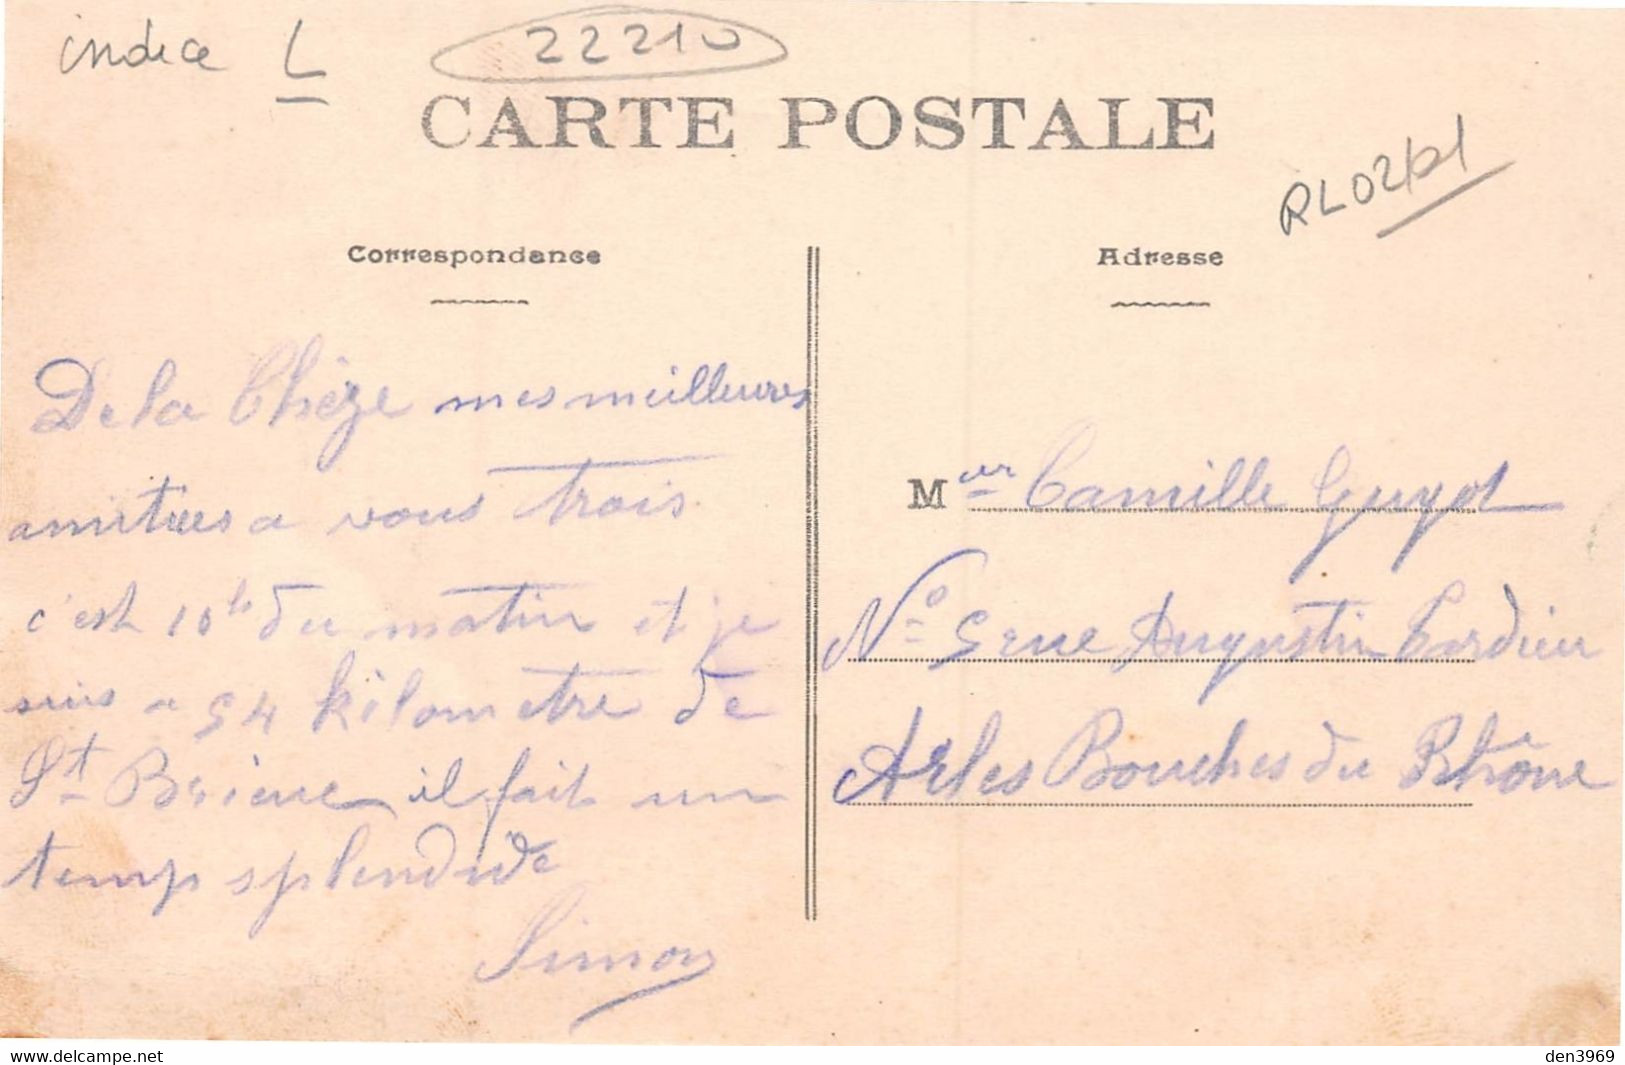 indice L
22210
CARTE POSTALE
RL02/21
Correspondance
De la Chèze mes meilleures
amitiees a vous trois
c'est 10 h du matin et je
suis a 54 kilometre de
St Brieuc il fait un
temp splendide
Simon
Adresse
Meur Camille Guyot
No 5 rue Augustin Tardieu
Arles Bouches du Rhône
www.delcampe.net
den3969